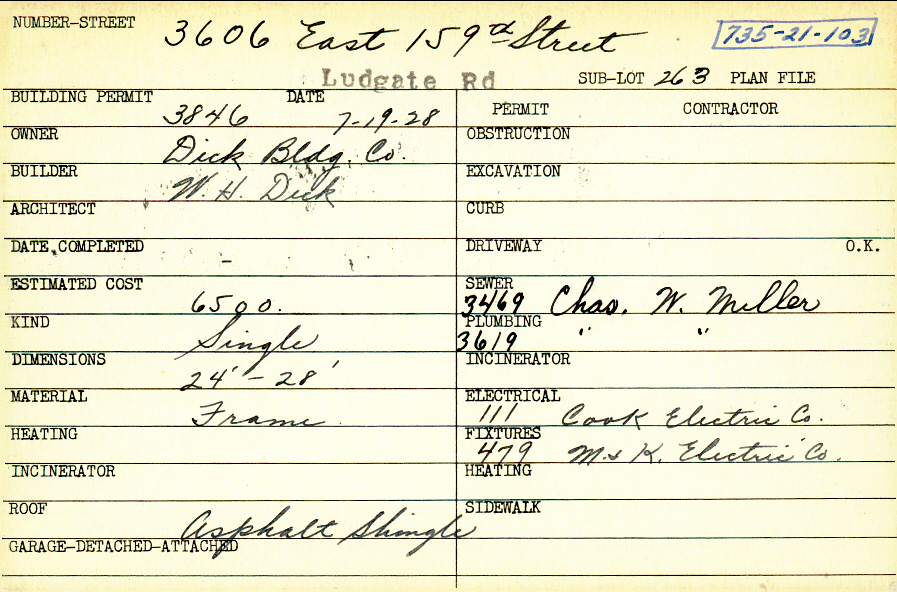 NUMBER-STREET 3606 East 159th Street 735-21-103
Ludgate Rd SUB-LOT 263 PLAN FILE
BUILDING PERMIT 3846 DATE 7-19-28
PERMIT CONTRACTOR
OWNER Dick Bldg. Co.
OBSTRUCTION
BUILDER W. H. Dick
EXCAVATION
ARCHITECT
CURB
DATE COMPLETED -
DRIVEWAY O.K.
ESTIMATED COST 6500.
SEWER 3469 Chas. W. Miller
KIND Single
PLUMBING 3619 " "
DIMENSIONS 24' - 28'
INCINERATOR
MATERIAL Frame
ELECTRICAL 111 Cook Electric Co.
HEATING
FIXTURES 479 M. & K. Electric Co.
INCINERATOR
HEATING
ROOF Asphalt Shingle
SIDEWALK
GARAGE-DETACHED-ATTACHED